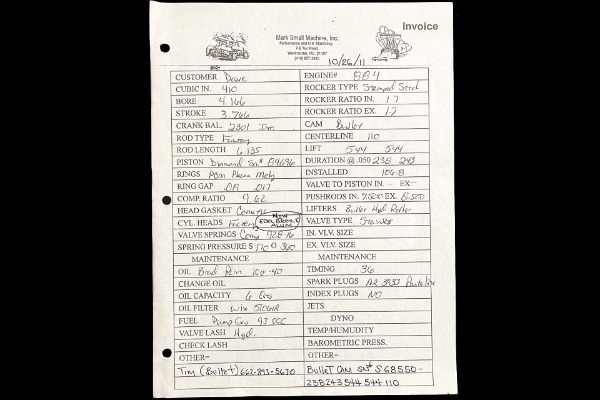 Invoice
Mark Small Machine, Inc.
Performance and O.E. Machining
Westminster, MD. 21157
10/26/11
CUSTOMER Dave
ENGINE# 554
CUBIC IN. 410
ROCKER TYPE Stamped Steel
BORE 4.166
ROCKER RATIO IN. 1.7
STROKE 3.766
ROCKER RATIO EX. 1.7
CRANK BAL. 2301 Int.
CAM Bullet
ROD TYPE Factory
CENTERLINE 110
ROD LENGTH 6.135
LIFT 544 544
PISTON Diamond Sn#
DURATION @ .050 238 243
RINGS Plasma Moly
INSTALLED 106.8
RING GAP .017
VALVE TO PISTON IN. - EX-
COMP. RATIO 9.62
PUSHRODS IN. EX. 8.500
HEAD GASKET Cometic
LIFTERS Bullet Hyd Roller
CYL. HEADS Factory
NOW EDELBROCK ALUM
VALVE TYPE Stainless
VALVE SPRINGS Comp 928-16
IN. VLV. SIZE
SPRING PRESSURE S 170 O 360
EX. VLV. SIZE
MAINTENANCE
MAINTENANCE
OIL Brad Penn 10W-40
TIMING 36
CHANGE OIL
SPARK PLUGS AR 3932
OIL CAPACITY 6 Qts
INDEX PLUGS NO
OIL FILTER Wix 51061R
JETS
FUEL Pump Gas 93 OCT
DYNO
VALVE LASH Hyd.
TEMP/HUMUDITY
CHECK LASH
BAROMETRIC PRESS.
OTHER=
OTHER=
Tim (Bullet) 662-893-5670
Bullet Cam SN# S68550-
238243 544 544 110